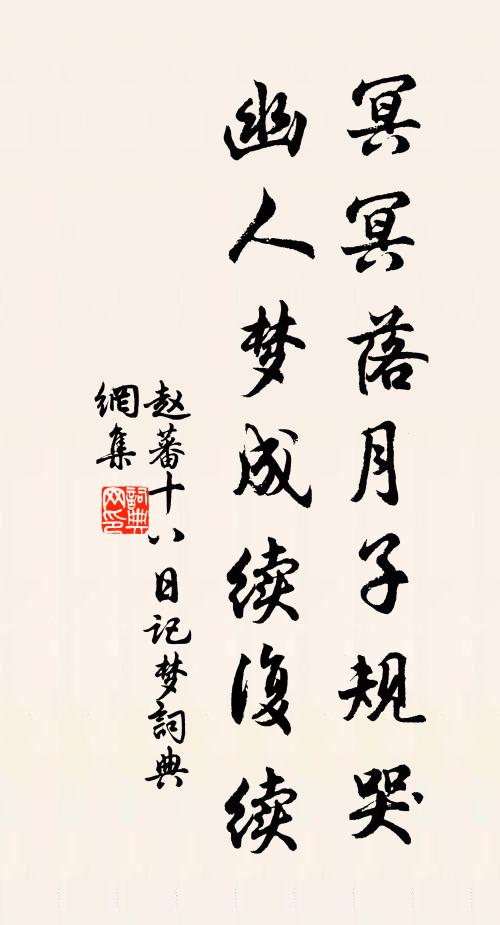 冥冥落月子规哭
幽人梦成续復续
赵蕃十八日记梦词典
網集
詞典
网印